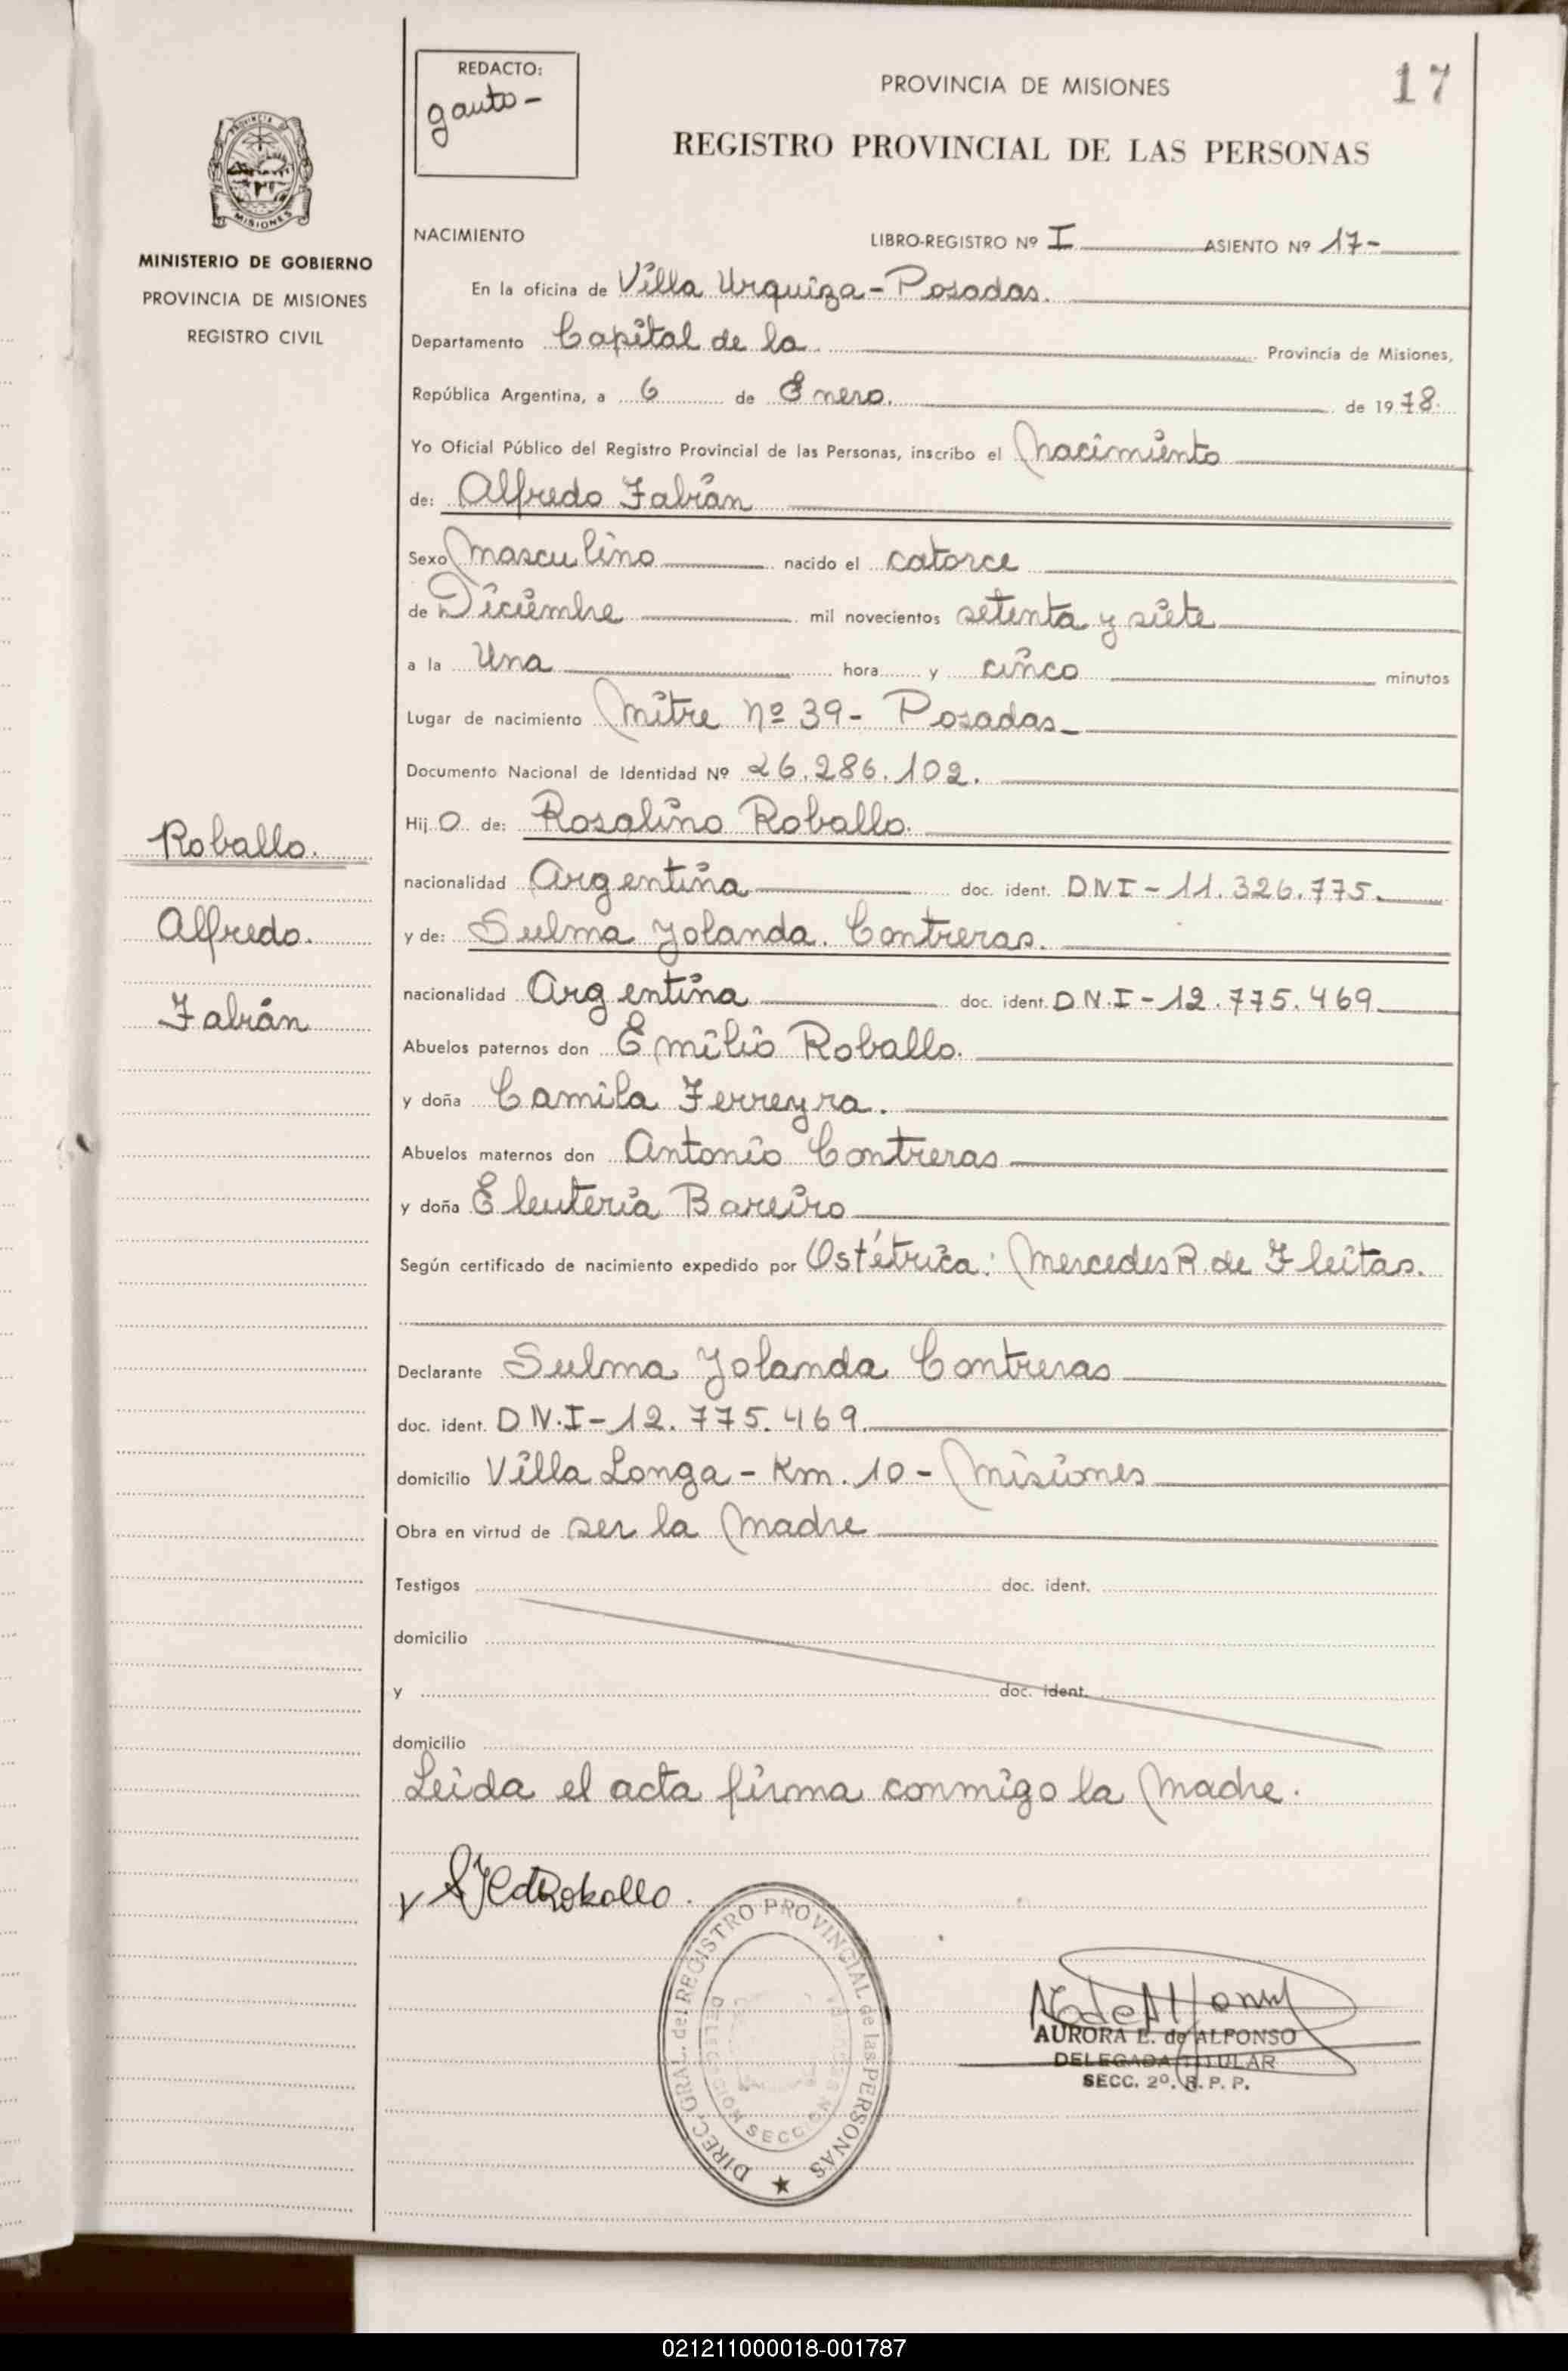 REDACTO:
gauto-
PROVINCIA DE MISIONES
17
REGISTRO PROVINCIAL DE LAS PERSONAS
PROVINCIA DE
MISIONES
MINISTERIO DE GOBIERNO
PROVINCIA DE MISIONES
REGISTRO CIVIL
Roballo.
Alfredo.
Fabián
NACIMIENTO LIBRO-REGISTRO Nº I ASIENTO Nº 17-
En la oficina de Villa Urquiza - Posadas.
Departamento Capital de la Provincia de Misiones,
República Argentina, a 6 de Enero. de 1978.
Yo Oficial Público del Registro Provincial de las Personas, inscribo el Nacimiento
de: Alfredo Fabián
Sexo Masculino nacido el catorce
de Diciembre mil novecientos setenta y siete
a la Una hora y cinco minutos
Lugar de nacimiento Mitre Nº 39 - Posadas
Documento Nacional de Identidad Nº 26.286.102.
Hij o de: Rosalino Roballo.
nacionalidad Argentina doc. ident. DNI - 11.326.775.
y de: Sulma Yolanda. Contreras.
nacionalidad Argentina doc. ident. D.N.I - 12.775.469
Abuelos paternos don Emilio Roballo.
y doña Camila Ferreyra.
Abuelos maternos don Antonio Contreras
y doña Eleuteria Bareiro
Según certificado de nacimiento expedido por Ostétrica: Mercedes R. de Fleitas.
Declarante Sulma Yolanda Contreras
doc. ident. D.N.I - 12.775.469.
domicilio Villa Longa - Km. 10 - Misiones
Obra en virtud de ser la Madre
Testigos doc. ident.
domicilio
y doc. ident.
domicilio
Leida el acta firma conmigo la Madre.
DIREC. GRAL. del REGISTRO PROVINCIAL de las PERSONAS
DELEGACION SECCION
AURORA E. de ALFONSO
DELEGADA TITULAR
SECC. 2º. R. P. P.
021211000018-001787